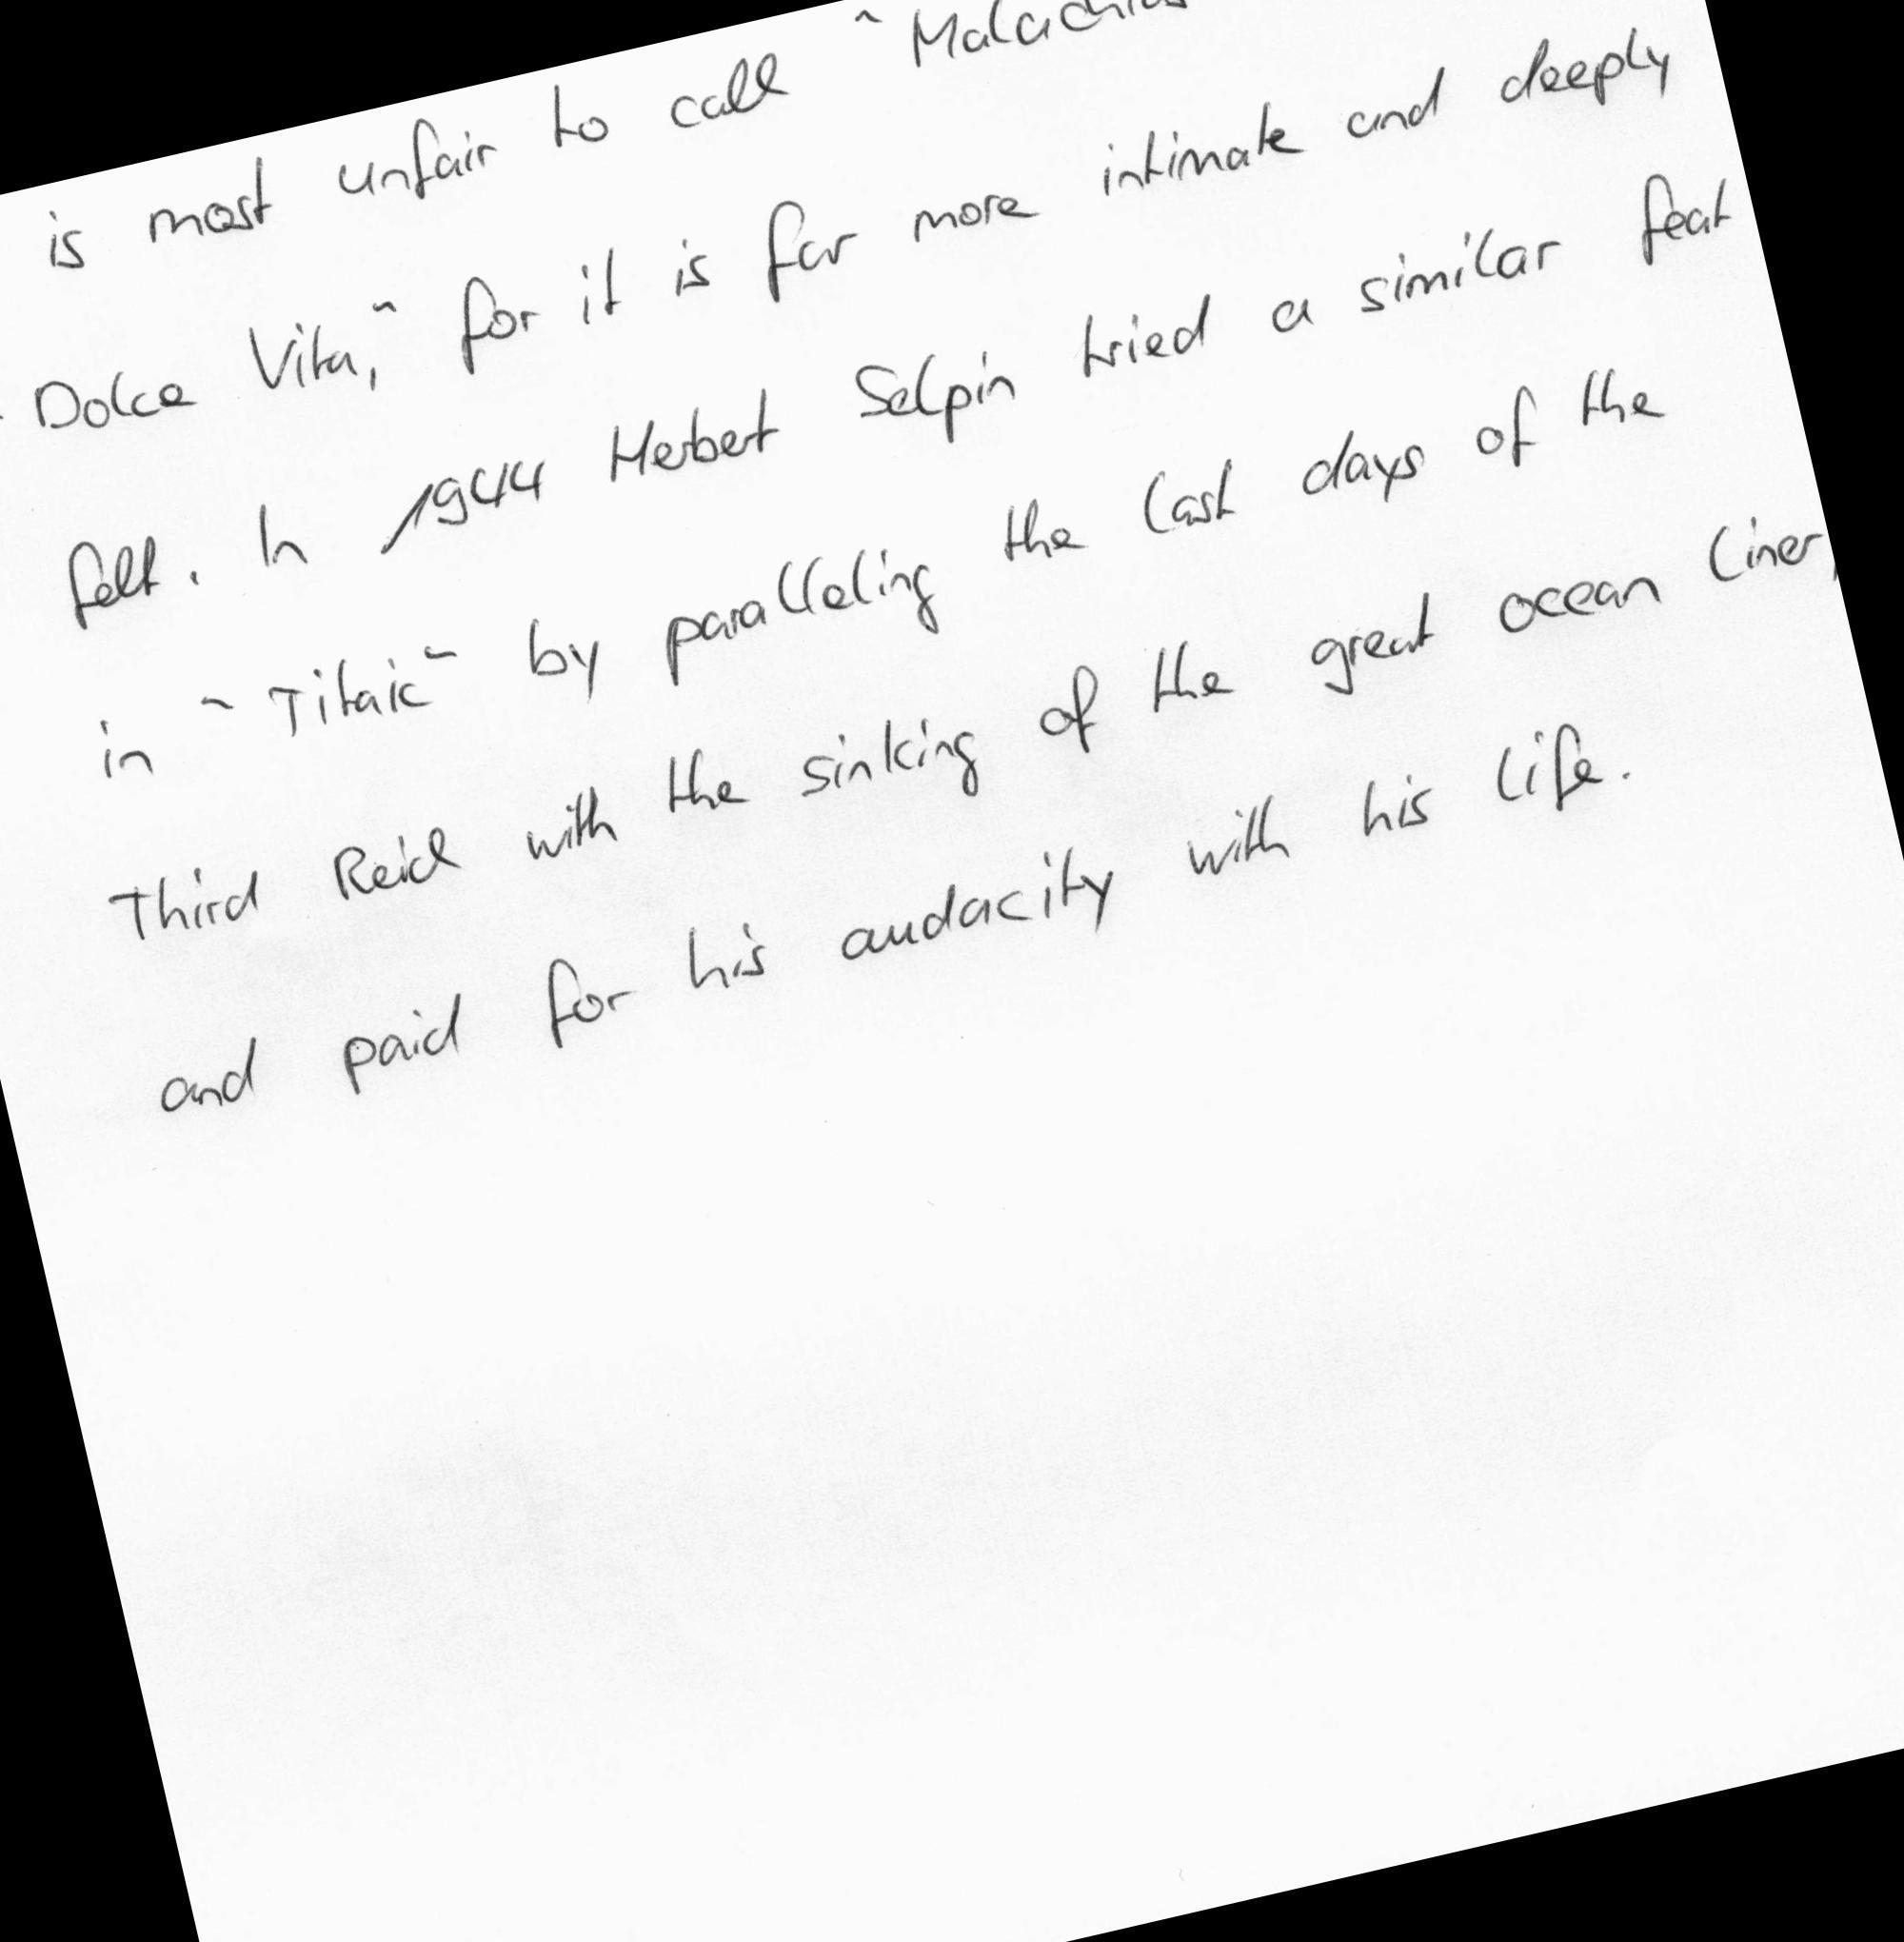 is most unfair to call "
Dolce Vita," for it is far more intimate and deeply
felt. In 1944 Herbert Selpin tried a similar feat
in "Titaic" by paralleling the last days of the
Third Reich with the sinking of the great ocean liner,
and paid for his audacity with his life.